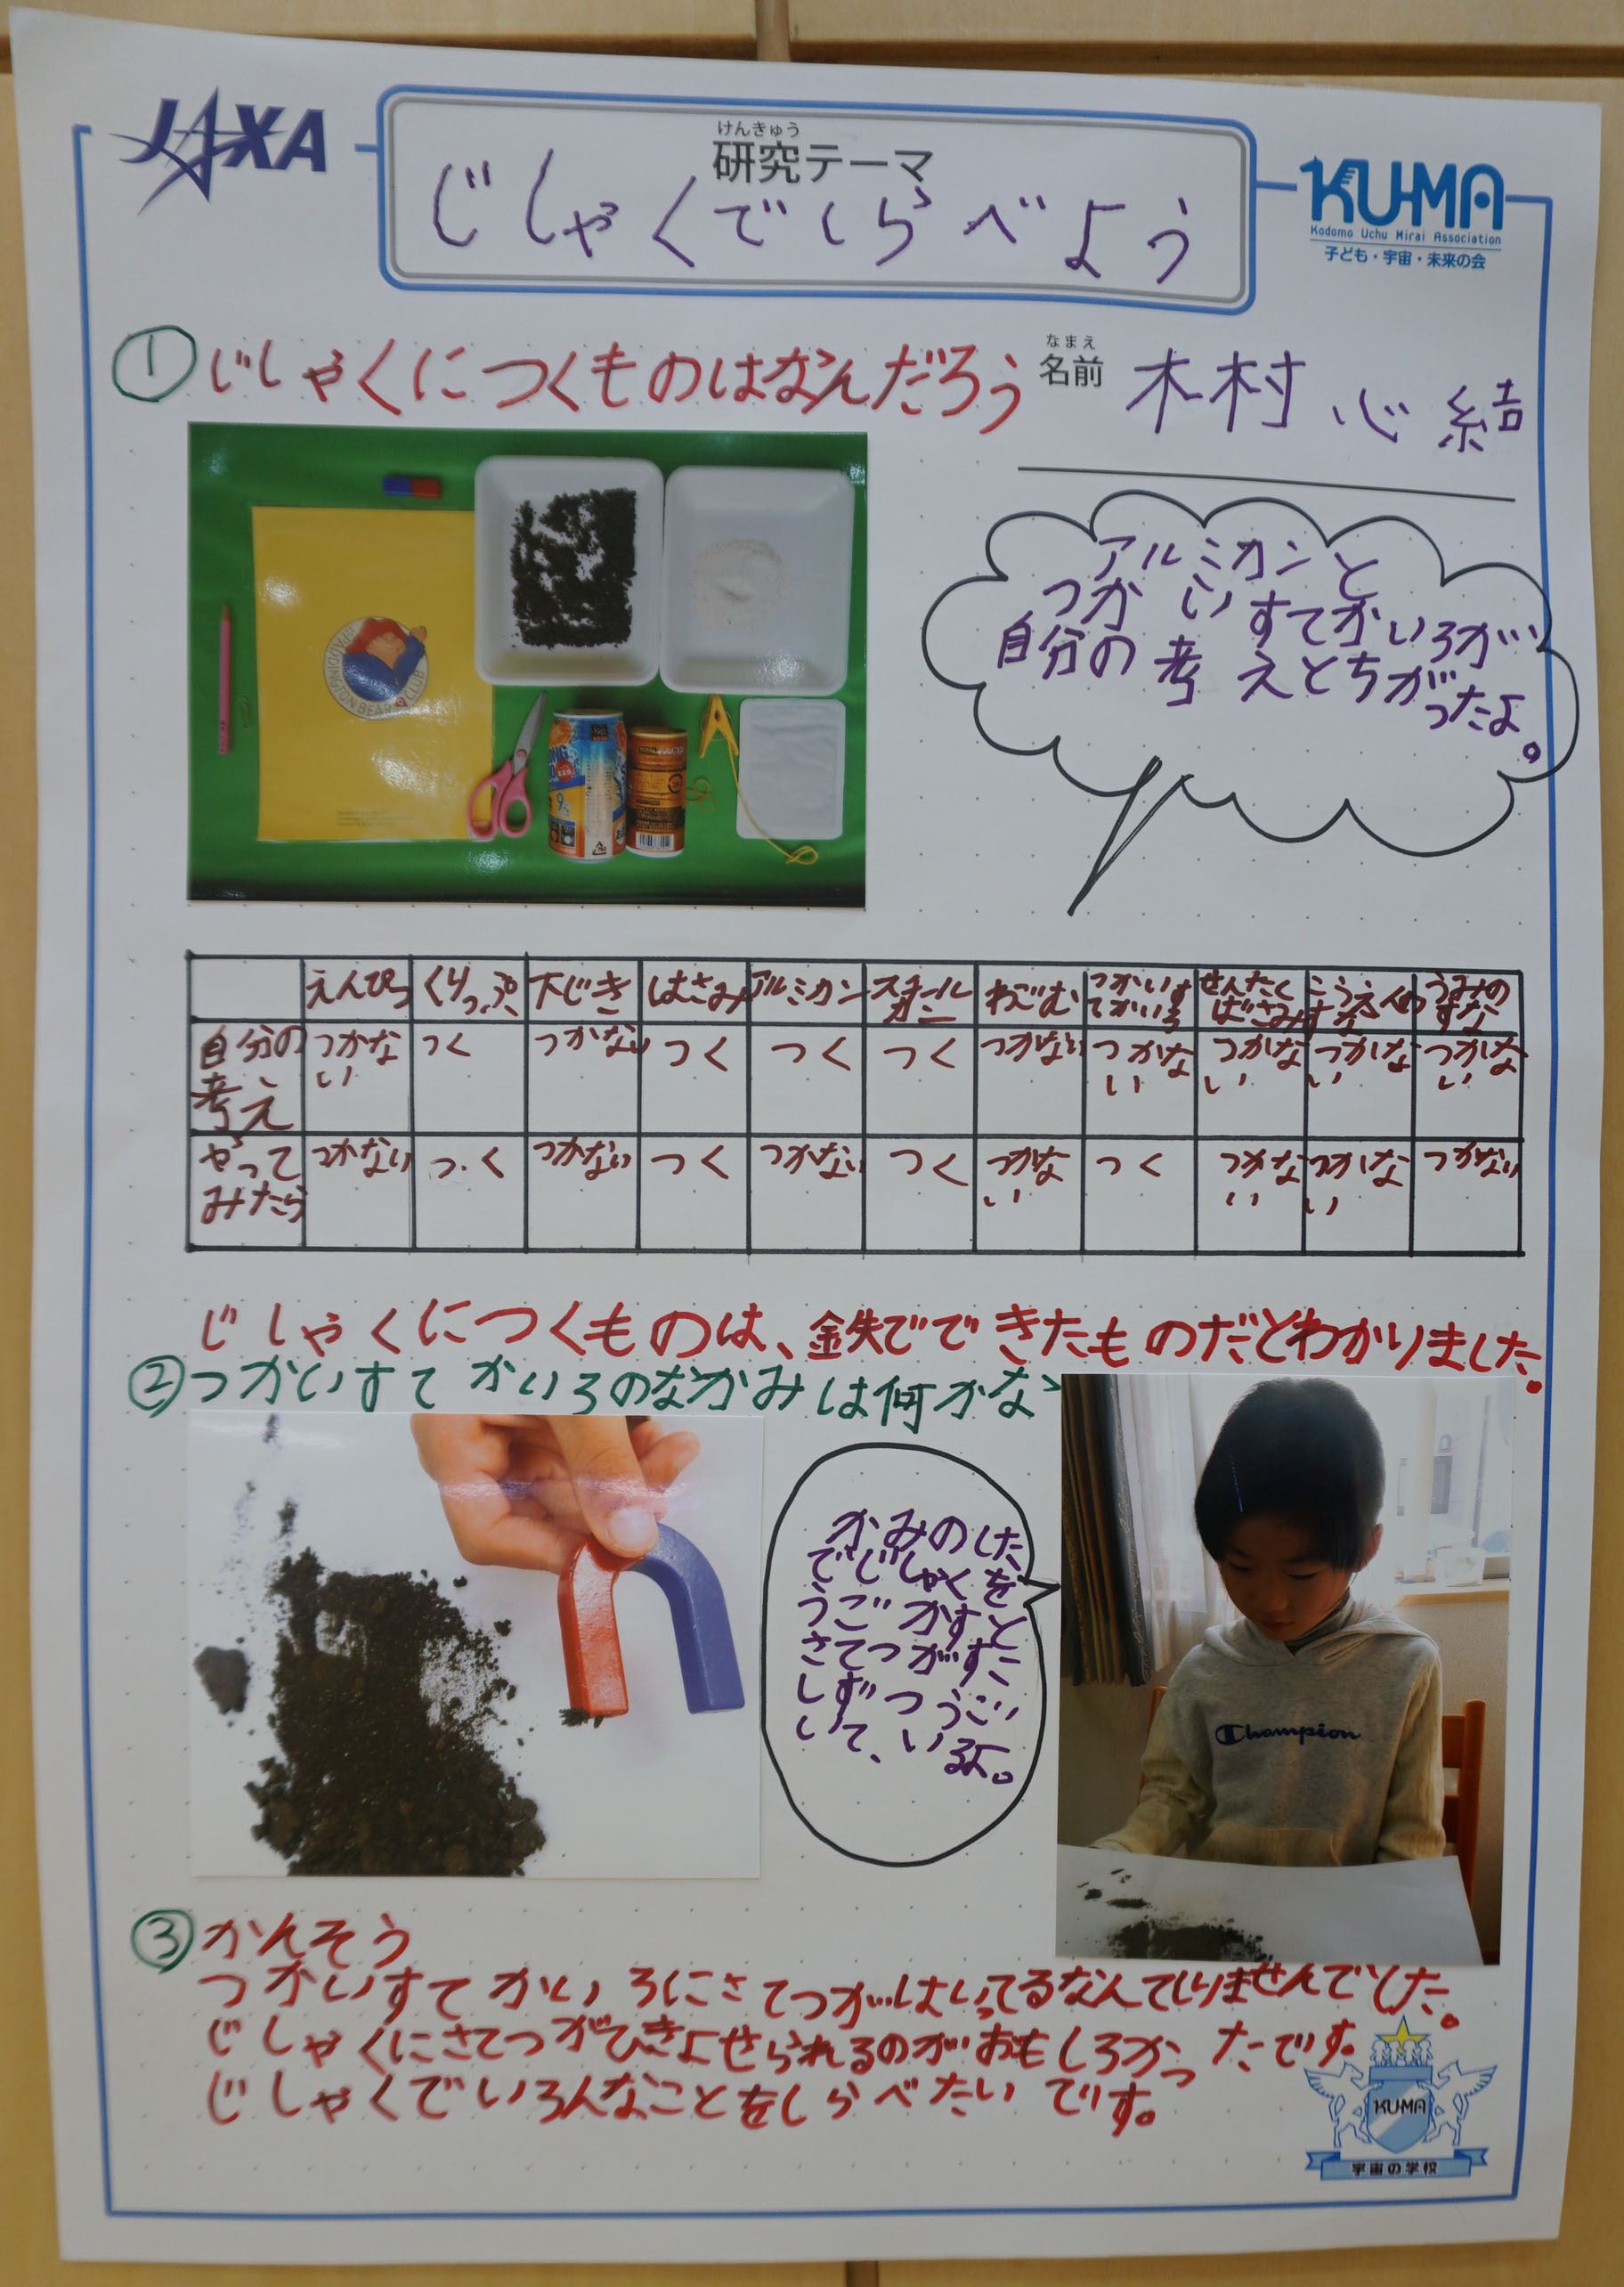 JAXA
けんきゅう
研究テーマ
じしゃくでしらべよう
KU-MA
Kodomo Uchu Mirai Association
子ども・宇宙・未来の会
①じしゃくにつくものはなんだろう
なまえ
名前 木村 心結
アルミカンと
つかいすてかいろが
自分の考えとちがっ
ったよ。
PADDINGTON BEAR CLUB
えんぴつ くりっぷ 下じき はさみ アルミカン スチールカン わごむ つかいすてかいろ せんたくばさみ こうえんのすな うみのすな
自分の考え つかない つく つかない つく つく つく つかない つかない つかない つかない つかない
やってみたら つかない つく つかない つく つかない つく つかない つく つかない つかない つかない
じしゃくにつくものは、鉄でできたものだとわかりました。
②つかいすてかいろのなかみは何かな
かみのした
でじしゃくを
うごかすと
さてつがすこ
しずつうご
いて、いるよ。
Champion
③かんそう
つかいすてかいろにさてつがはいってるなんてしりませんでした。
じしゃくにさてつがひきよせられるのがおもしろかったです。
じしゃくでいろんなことをしらべたいです。
KU-MA
宇宙の学校